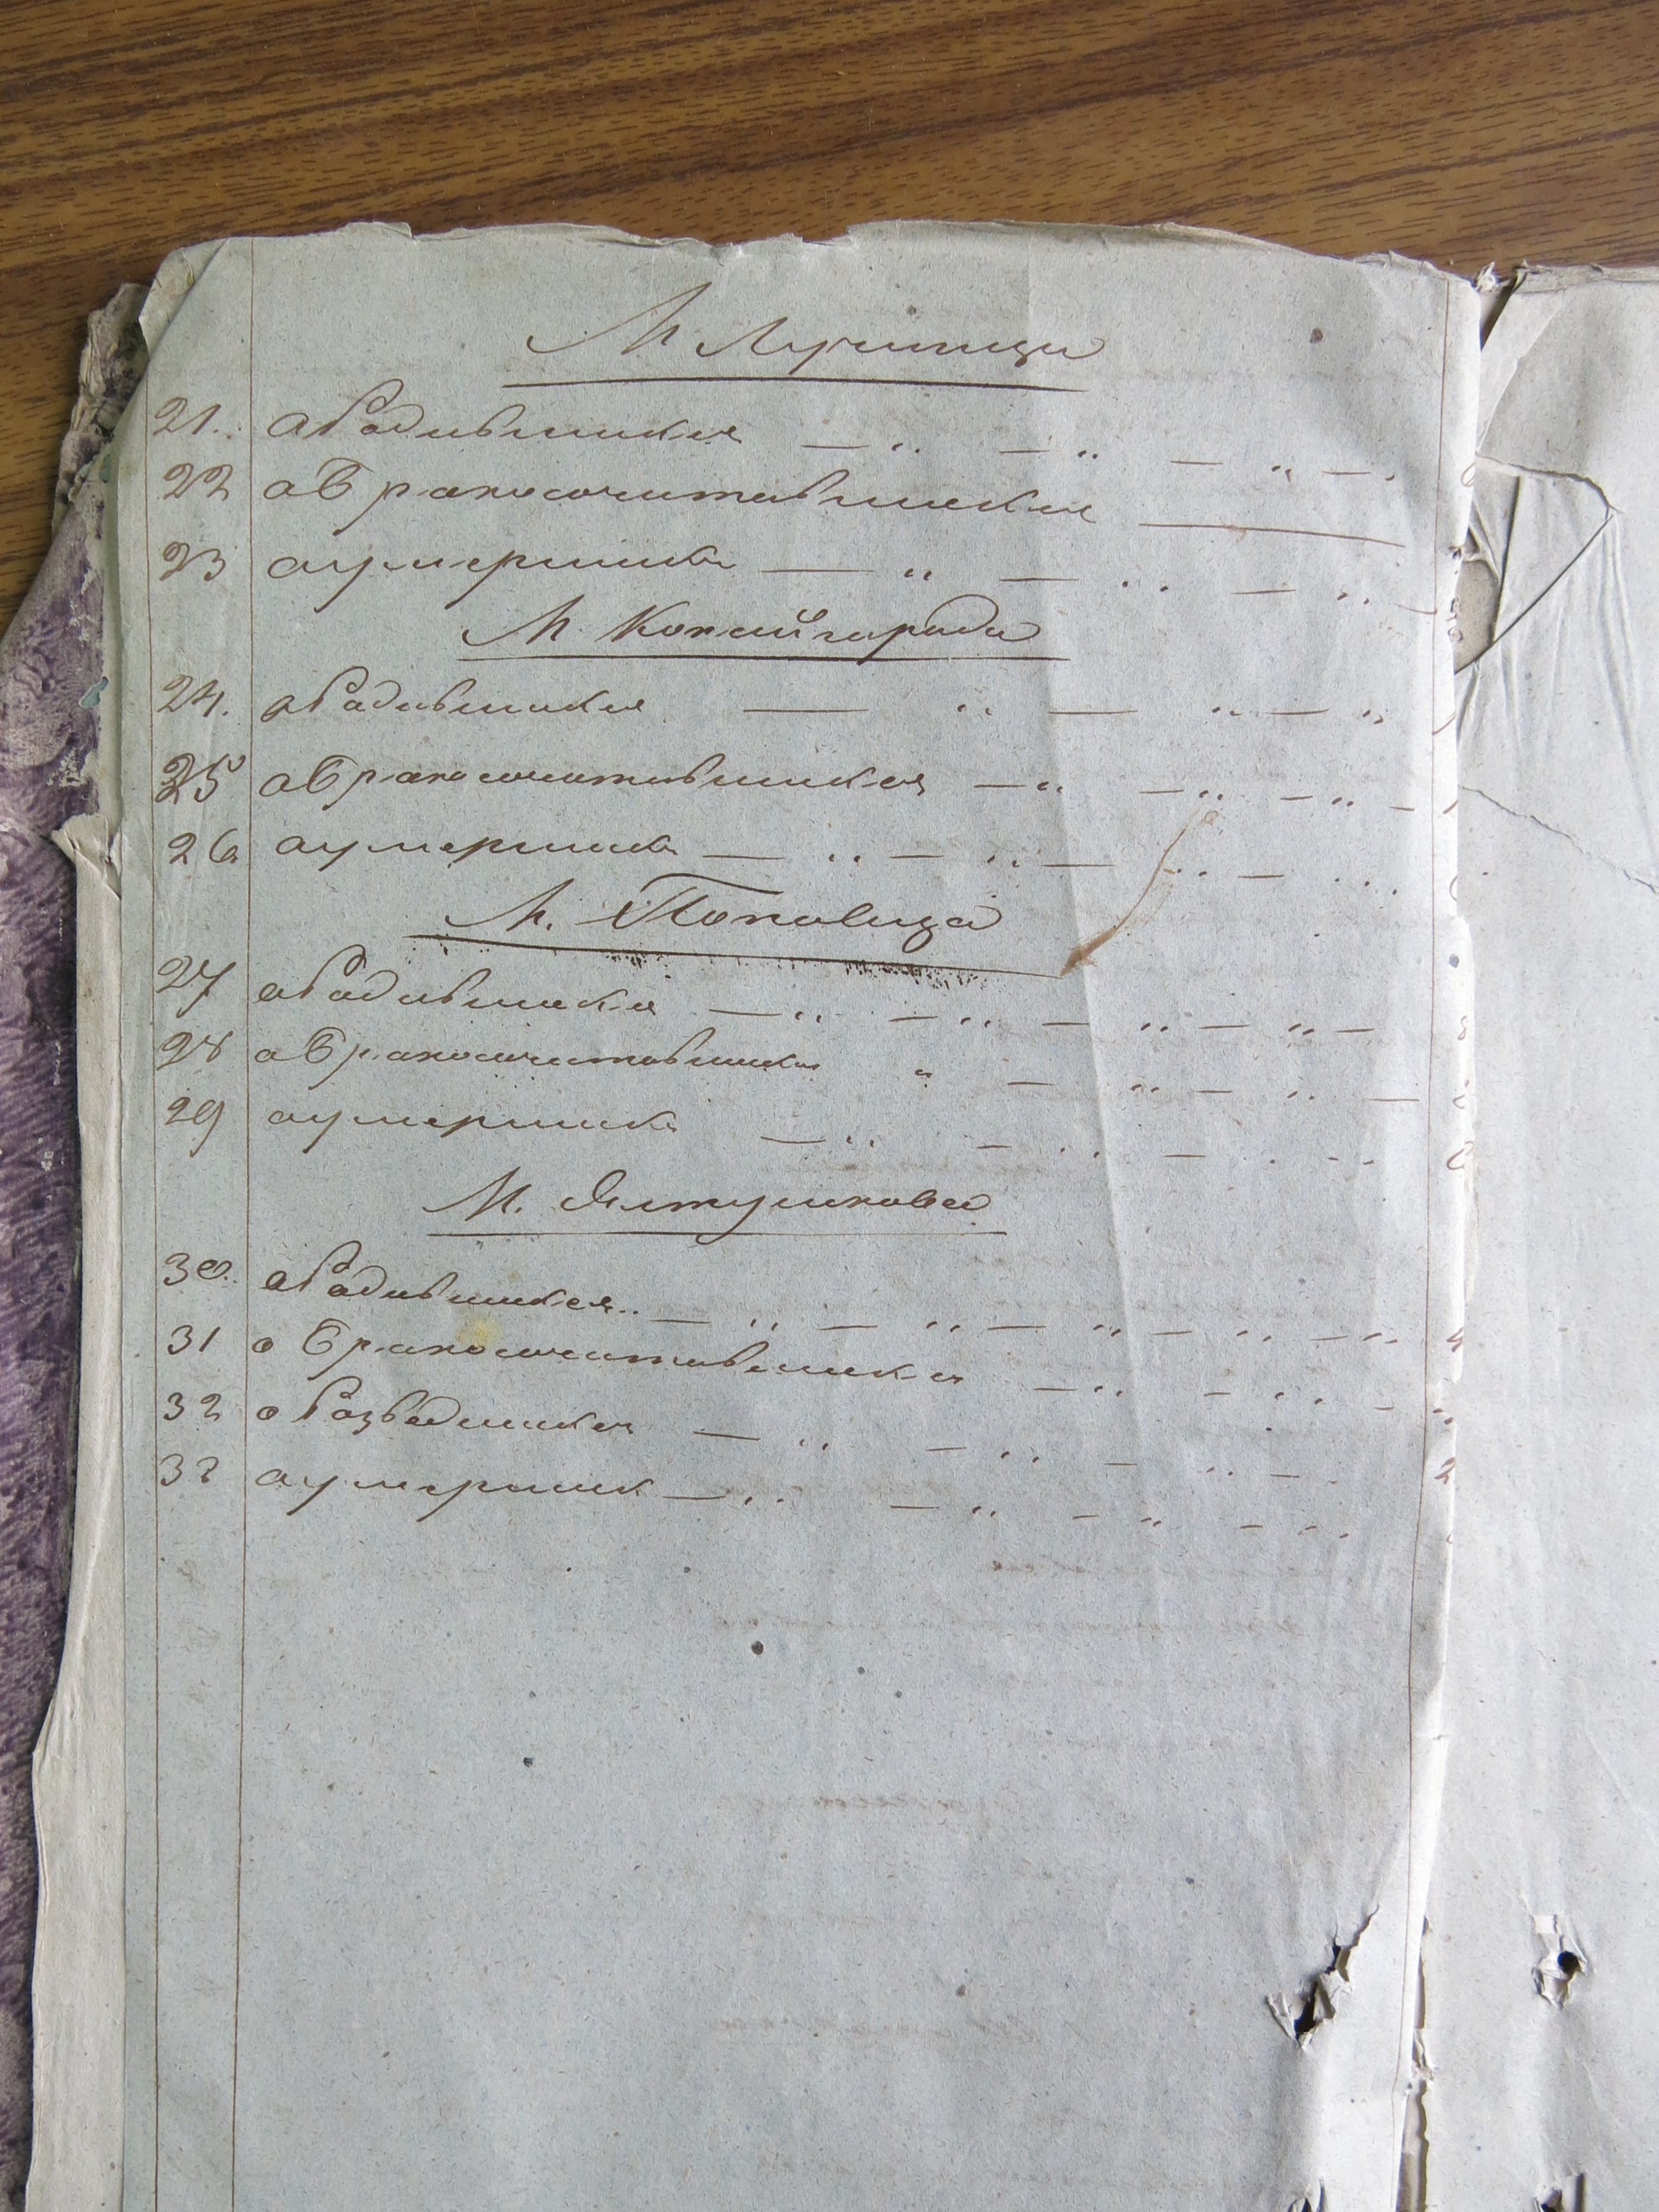 М Лучинци
21. о Родившихся — " — " — " —
22 о Бракосочитавшихся —
23 о умерших — " — " — "
М. Копайгорода
24. о Родившихся — " — " — "
25 о Бракосочитавшихся — " — " — " —
26 о умерших — " — " — " — "
М. Поповица
27 о Родившихся — " — " — " — " —
28 о Бракосочитавшихся " — " — " —
29 о умерших — " — " — "
М. Ялтушкова
30. о Родившихся — " — " — " — " — "
31 о Бракосочитавшихся — " — " —
32 о Разведшихся — " — " — " —
33 о умерших — " — " — " — "